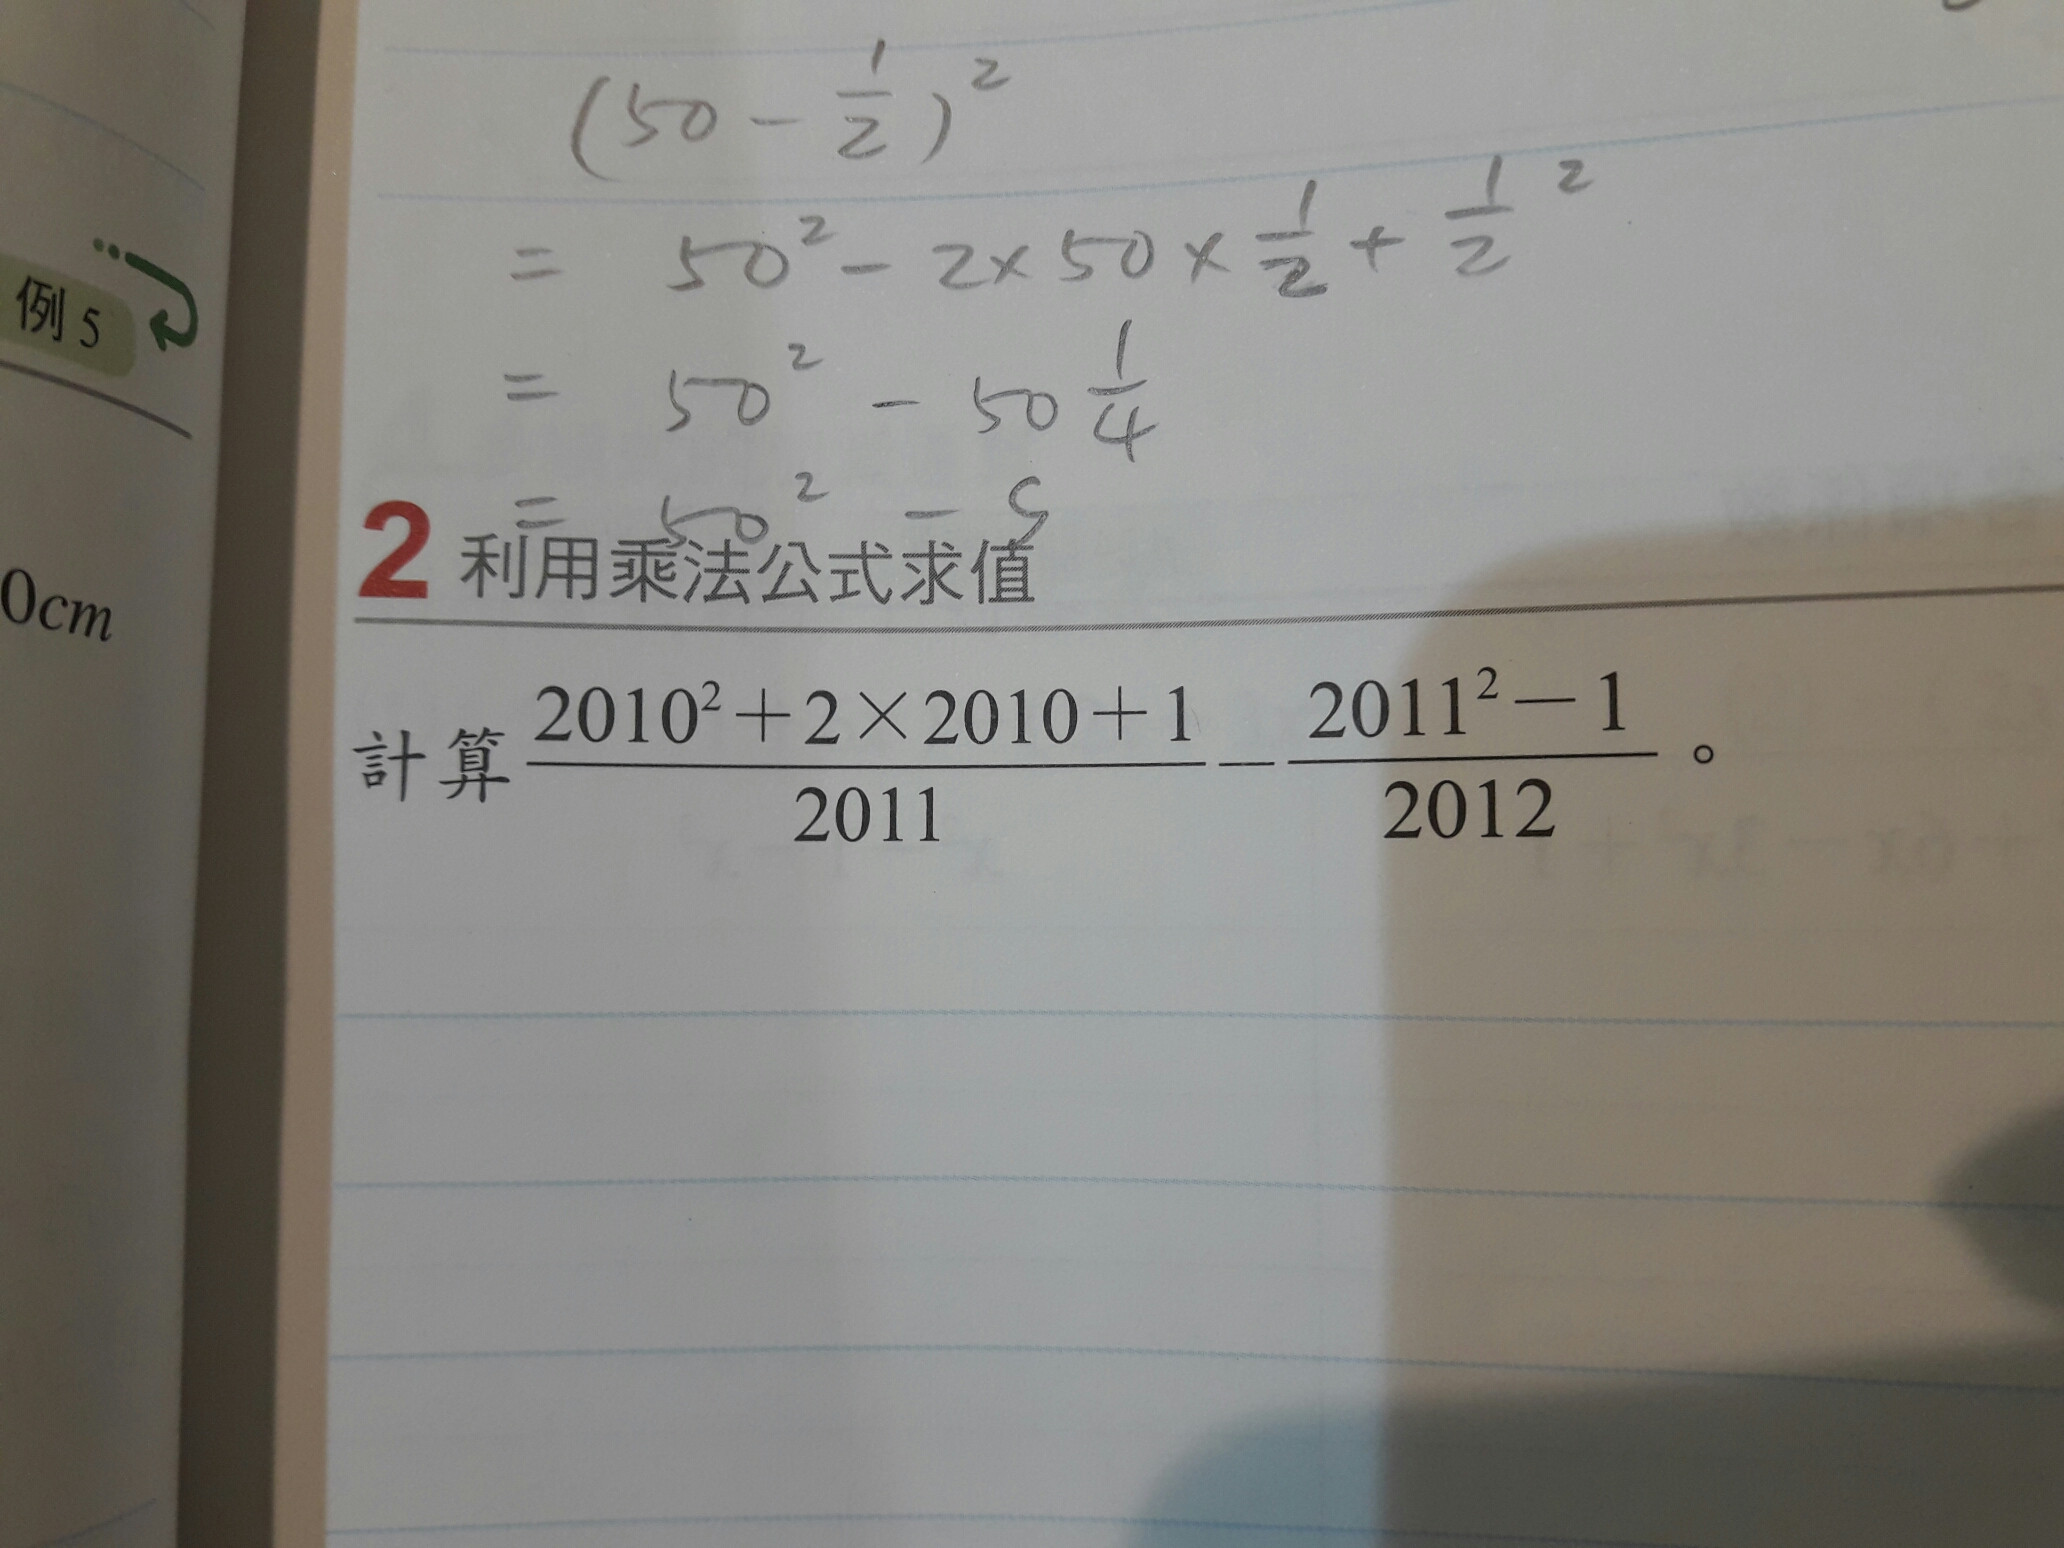 (50 - 1/2)²
= 50² - 2×50×1/2 + 1/2²
= 50² - 50 1/4
= 50² - 5
例5
0cm
2 利用乘法公式求值
計算 (2010²+2×2010+1)/2011 - (2011²-1)/2012 。